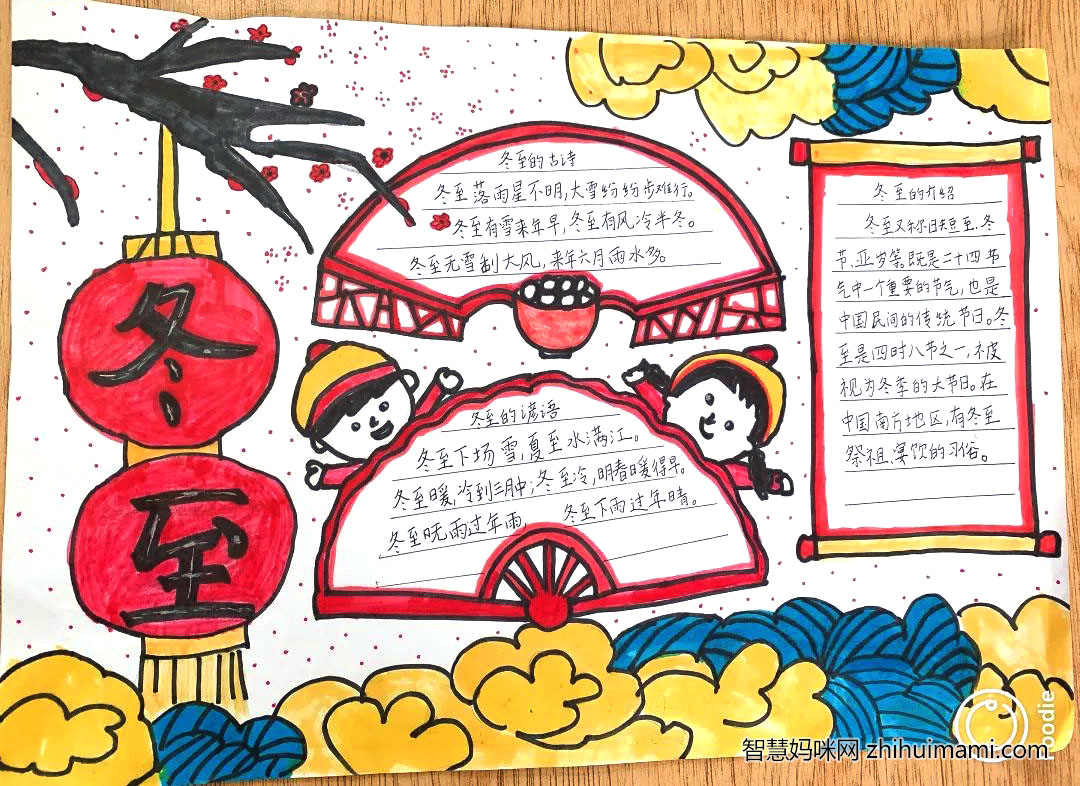 冬
至
冬至的古诗
冬至落雨星不明,大雪纷纷步难行。
冬至有雪来年旱,冬至有风冷半冬。
冬至无雪刮大风,来年六月雨水多。
冬至的谚语
冬至下场雪,夏至水满江。
冬至暖,冷到三月中;冬至冷,明春暖得早。
冬至晄雨过年雨, 冬至下雨过年晴。
冬至的介绍
冬至又称日短至、冬
节、亚岁等。既是二十四节
气中一个重要的节气,也是
中国民间的传统节日。冬
至是四时八节之一,被
视为冬季的大节日。在
中国南方地区,有冬至
祭祖、宴饮的习俗。
智慧妈咪网 zhihuimami.com
oodie